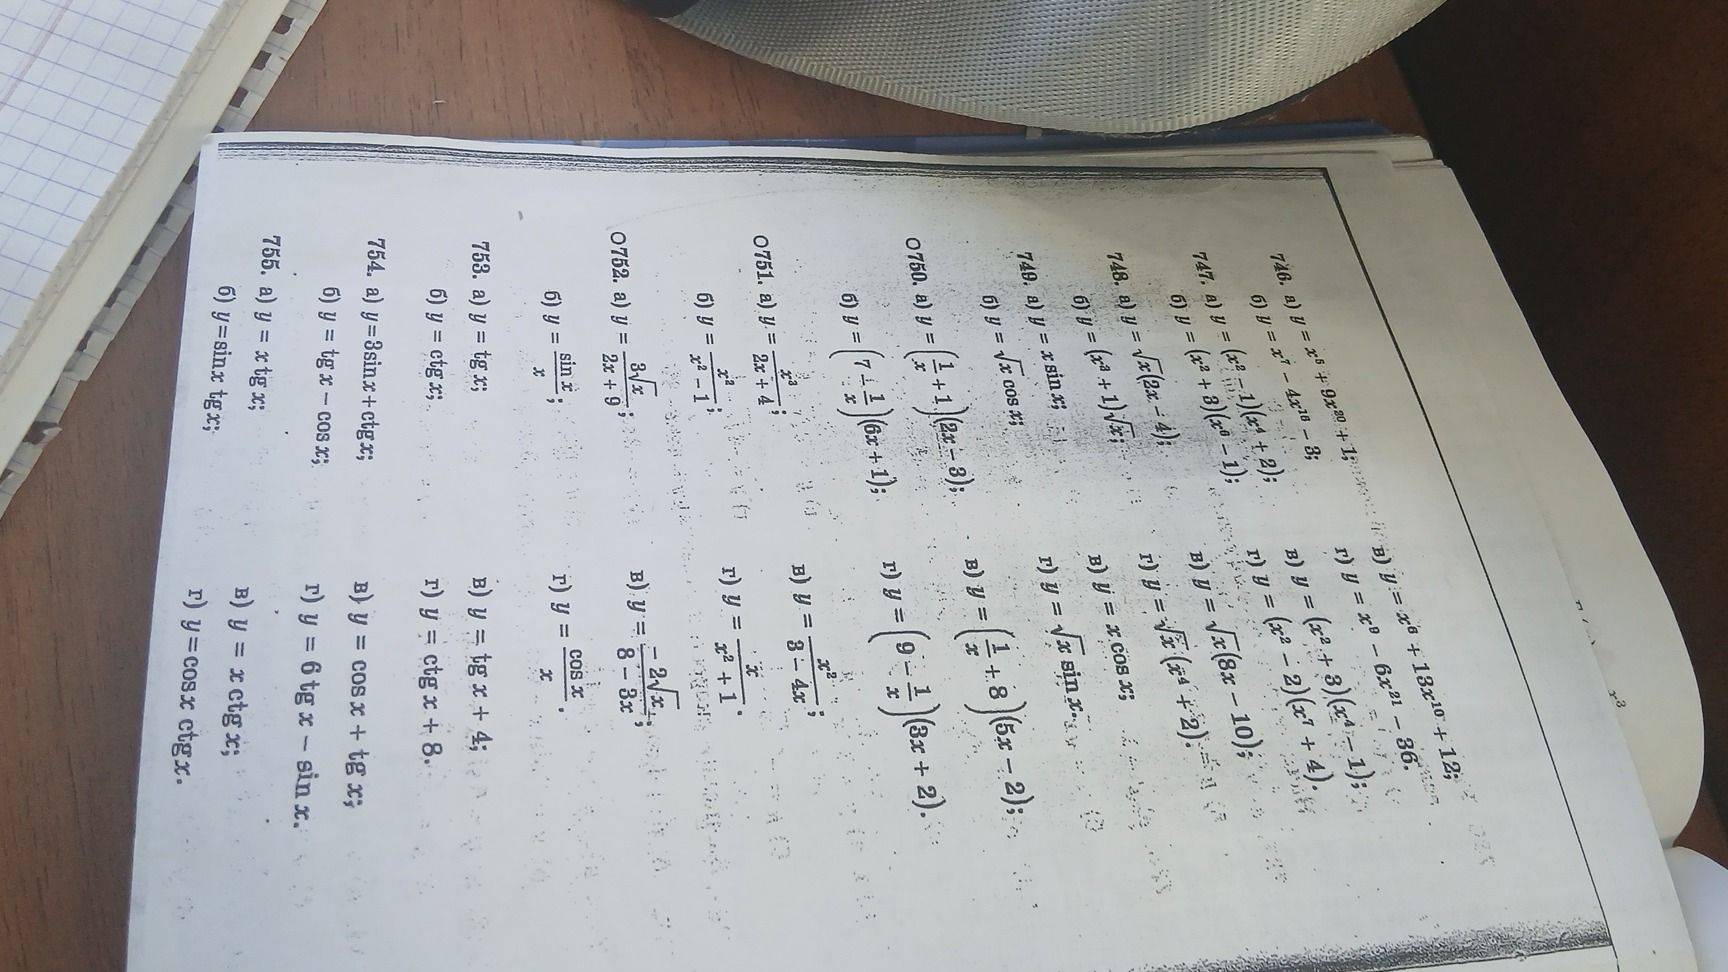 746. а) y = x⁵ + 9x²⁰ + 1; в) y = x⁶ + 13x¹⁰ + 12;
б) y = x⁷ − 4x¹⁶ − 3; г) y = x⁹ − 6x²¹ − 36.
747. а) y = (x² − 1)(x⁴ + 2); в) y = (x² + 3)(x⁴ − 1);
б) y = (x² + 3)(x⁶ − 1); г) y = (x² − 2)(x⁷ + 4).
748. а) y = √x(2x − 4); в) y = √x(8x − 10);
б) y = (x³ + 1)√x; г) y = √x(x⁴ + 2).
749. а) y = x sin x; в) y = x cos x;
б) y = √x cos x; г) y = √x sin x.
О750. а) y = (1/x + 1)(2x − 3); в) y = (1/x + 8)(5x − 2);
б) y = (7 − 1/x)(6x + 1); г) y = (9 − 1/x)(3x + 2).
О751. а) y = x³/(2x + 4); в) y = x²/(3 − 4x);
б) y = x²/(x² − 1); г) y = x/(x² + 1).
О752. а) y = 3√x/(2x + 9); в) y = −2√x/(8 − 3x);
б) y = sin x/x; г) y = cos x/x.
753. а) y = tg x; в) y = tg x + 4;
б) y = ctg x; г) y = ctg x + 8.
754. а) y = 3 sin x + ctg x; в) y = cos x + tg x;
б) y = tg x − cos x; г) y = 6 tg x − sin x.
755. а) y = x tg x; в) y = x ctg x;
б) y = sin x tg x; г) y = cos x ctg x.